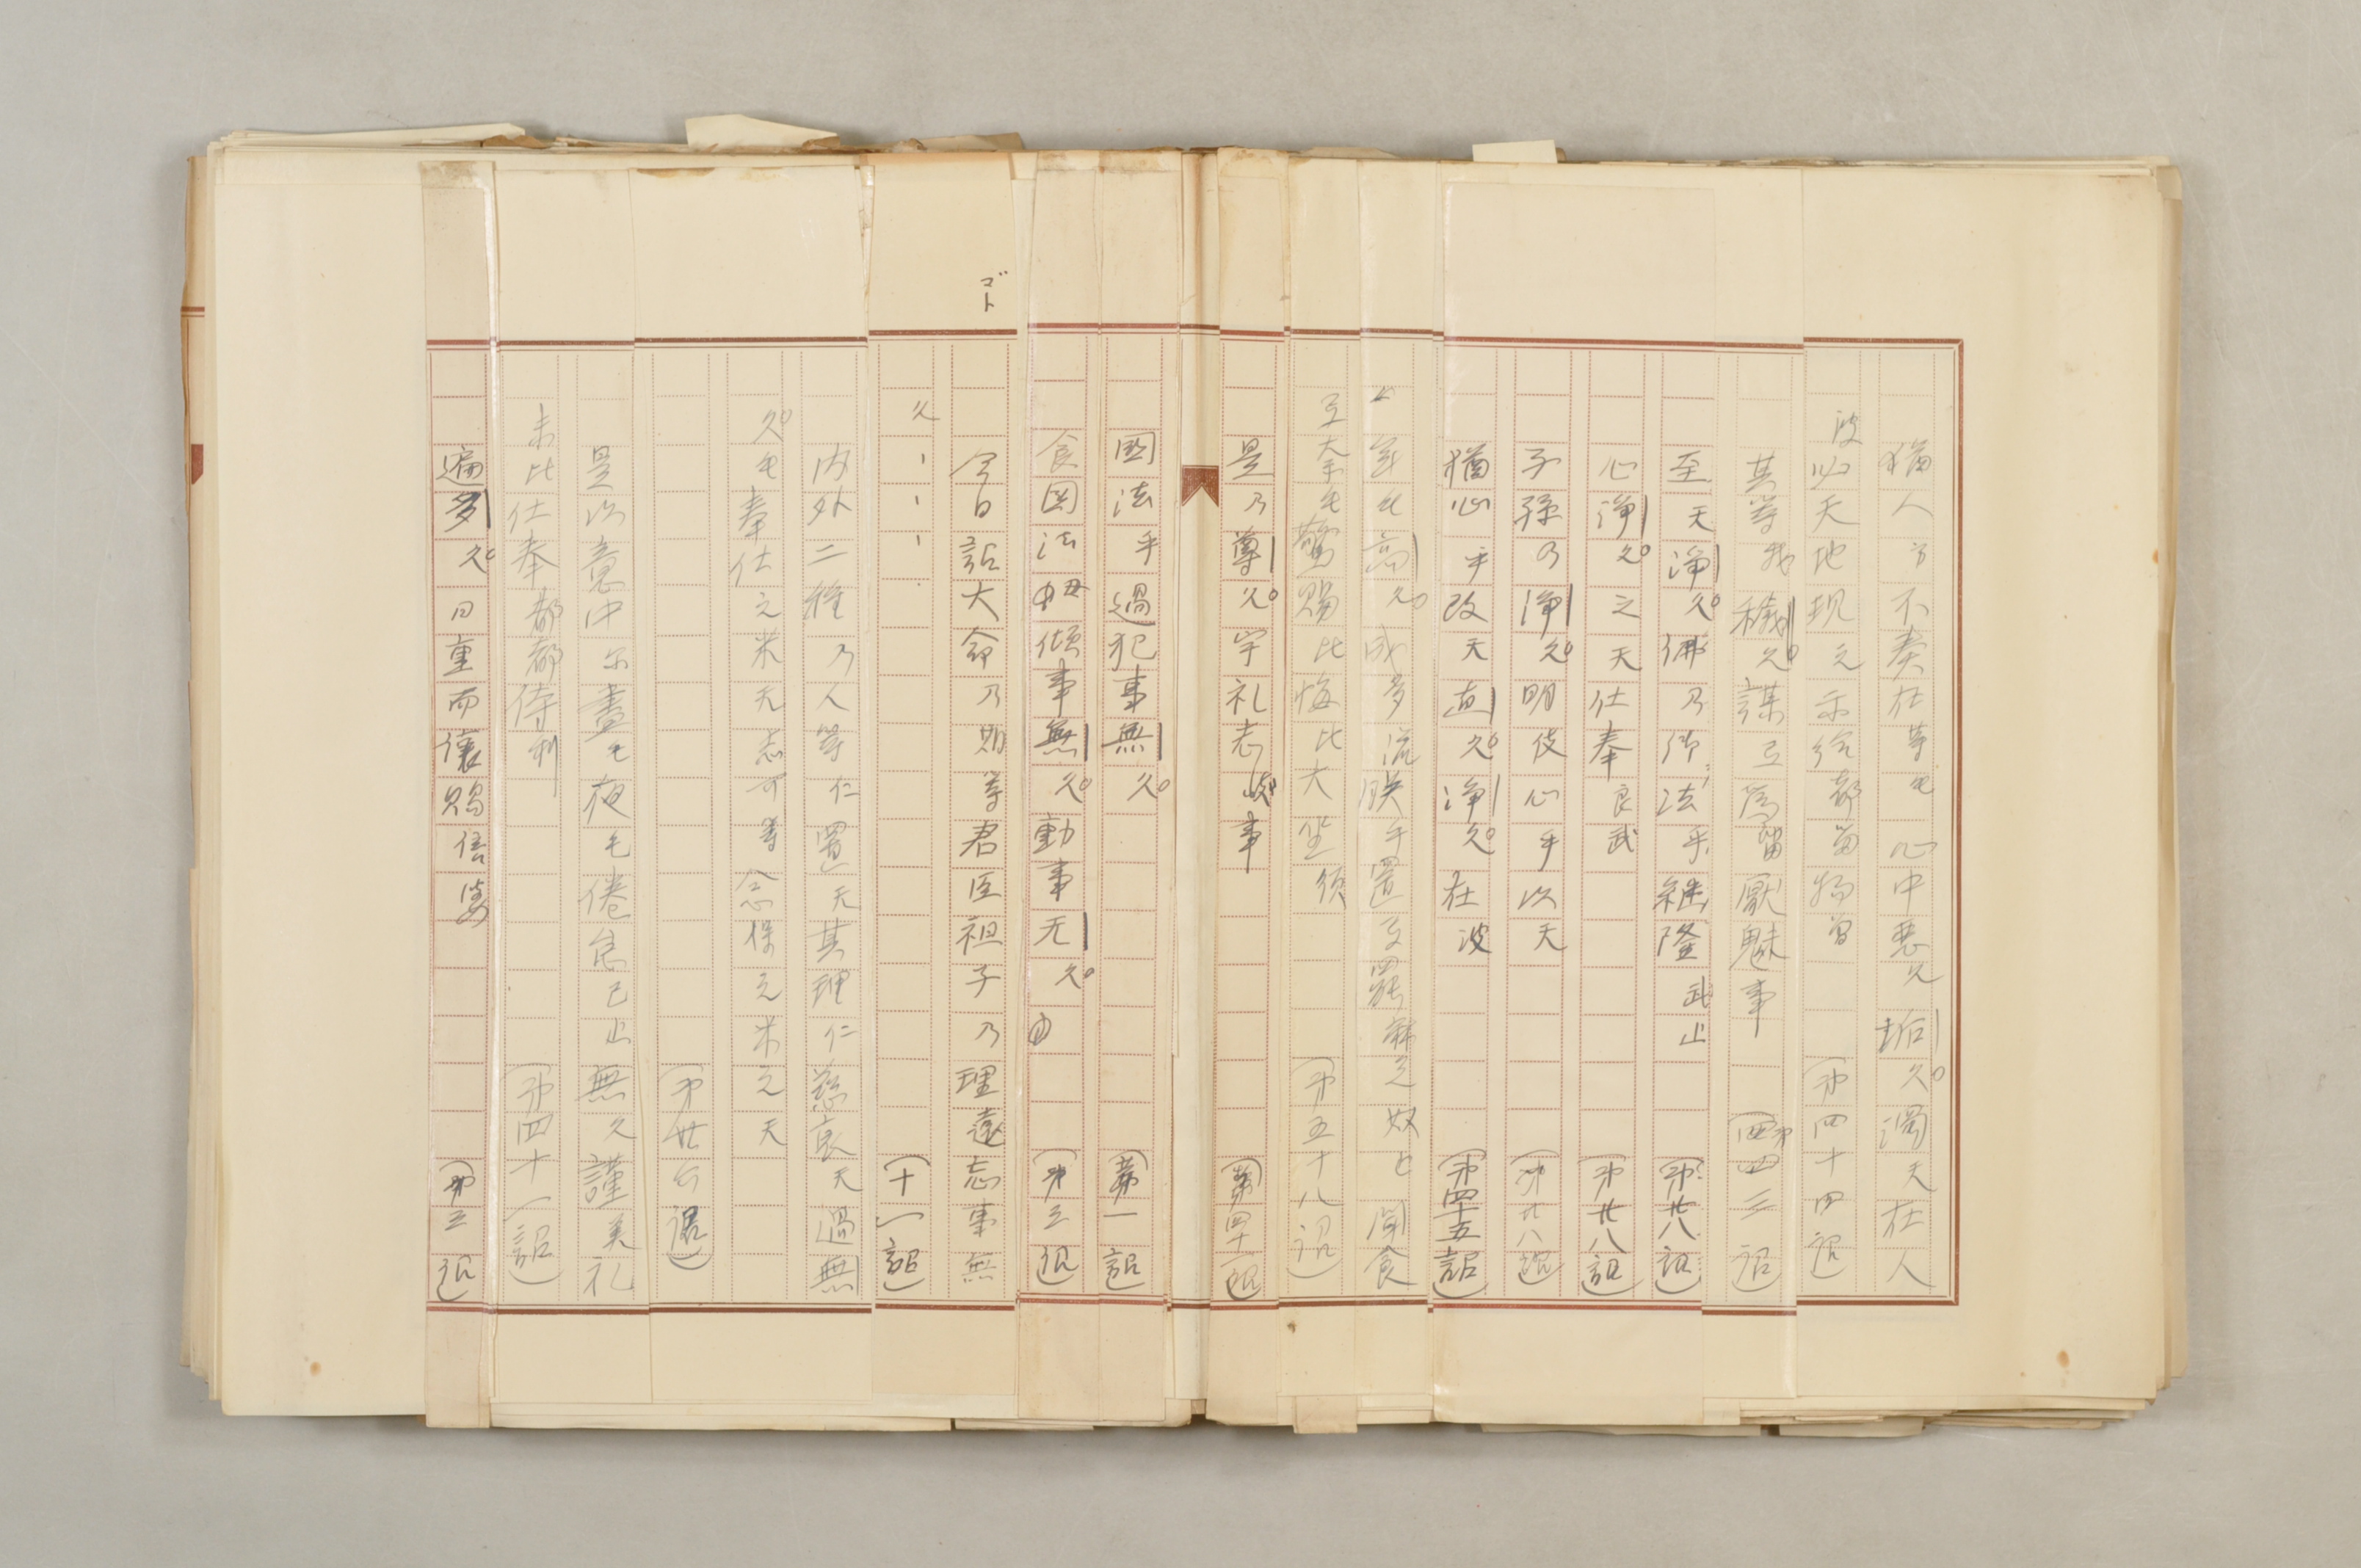 猶人方不奏在等毛心中悪久垢久濁天在人
波必天地現之示給都留物曽 (第四十四詔)
其等我穢久謀弖為留厭魅事 (第四三詔)
至天浄久佛乃御法乎継隆武止 (第廿八詔)
心浄久之天仕奉良武 (第廿八詔)
子孫乃浄久明伎心乎以天 (第廿八詔)
猶心乎改天直久浄久在波 (第四十五詔)
年毛高久成多流朕乎置弖罷止聞食
弖大御毛驚賜比悔比大坐須 (第五十八詔)
是乃尊久宇礼志岐事 (第四十一詔)
國法乎過犯事無久 (第一詔)
食国法毋傾事無久動事无久 (第三詔)
ゴト
今日詔大命乃期等君臣祖子乃理遠忘事無
久、、、 (十一詔)
内外二種乃人等仁置天其理仁慈哀天過無
久毛奉仕之米天志可等念保之米之天
(第廿六詔)
是以意中尓晝毛夜毛倦怠己止無久謹美礼
末比仕奉都都侍利 (第四十一詔)
遍多久日重而譲賜倍婆 (第三詔)